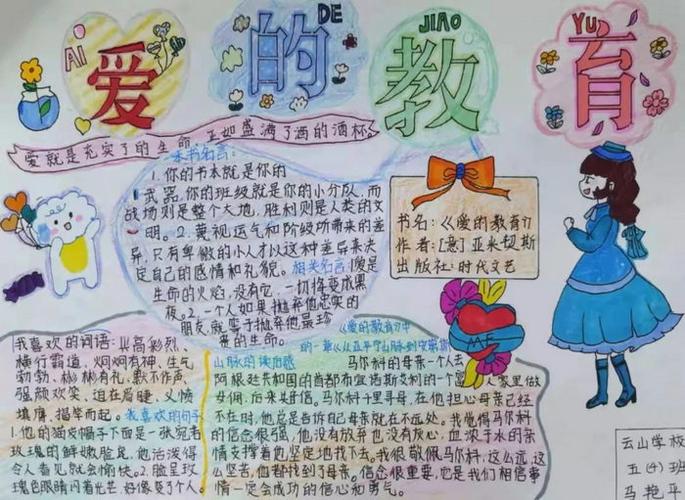 AI
DE
JIAO
YU
爱的教育
爱就是充实了的生命,正如盛满了酒的酒杯。
本书名言:
1.你的书本就是你的
武器,你的班级就是你的小分队,而
战场则是整个大地,胜利则是人类的文
明。2.蔑视运气和阶级所带来的差
异,只有卑微的小人才以这种差异来决
定自己的感情和礼貌。相关名言:1.爱是
生命的火焰,没有它,一切将变成黑
夜。2.一个人如果抛弃他忠实的
朋友,就等于抛弃他最珍
贵的生命。
书名:《爱的教育》
作者:[意]亚米契斯
出版社:时代文艺
ME
我喜欢的词语:兴高彩烈、
横行霸道、炯炯有神、生气
勃勃、彬彬有礼、默不作声、
强颜欢笑、迫在眉睫、义愤
填膺、揭竿而起。我喜欢的句子
1.他的猫皮帽子下面是一张宛若
玫瑰的鲜嫩脸尾,他活泼得
令人看见就会愉快。2.脸呈玫
瑰色眼睛闪着光芒,好像变了个人。
《爱的教育》中
的一章《从亚平宁山脉到安第斯
山脉的读后感
马尔科的母亲一个人去
阿根廷共和国的首都布宜诺斯艾利的一个富人家里做
女佣,后来失去信。马尔科千里寻母,在他担心母亲已经
不在时,他总是告诉自己母亲就在不远处。我觉得马尔科
的信念很强,他没有放弃也没有灰心,血浓于水的亲
情支撑着他坚定地找下去。我很敬佩马尔科,这么远,这
么坚苦,他都找到了母亲。信念很重要,它是我们相信事
情一定会成功的信心和勇气。
云山学校
五(4)班
马艳平